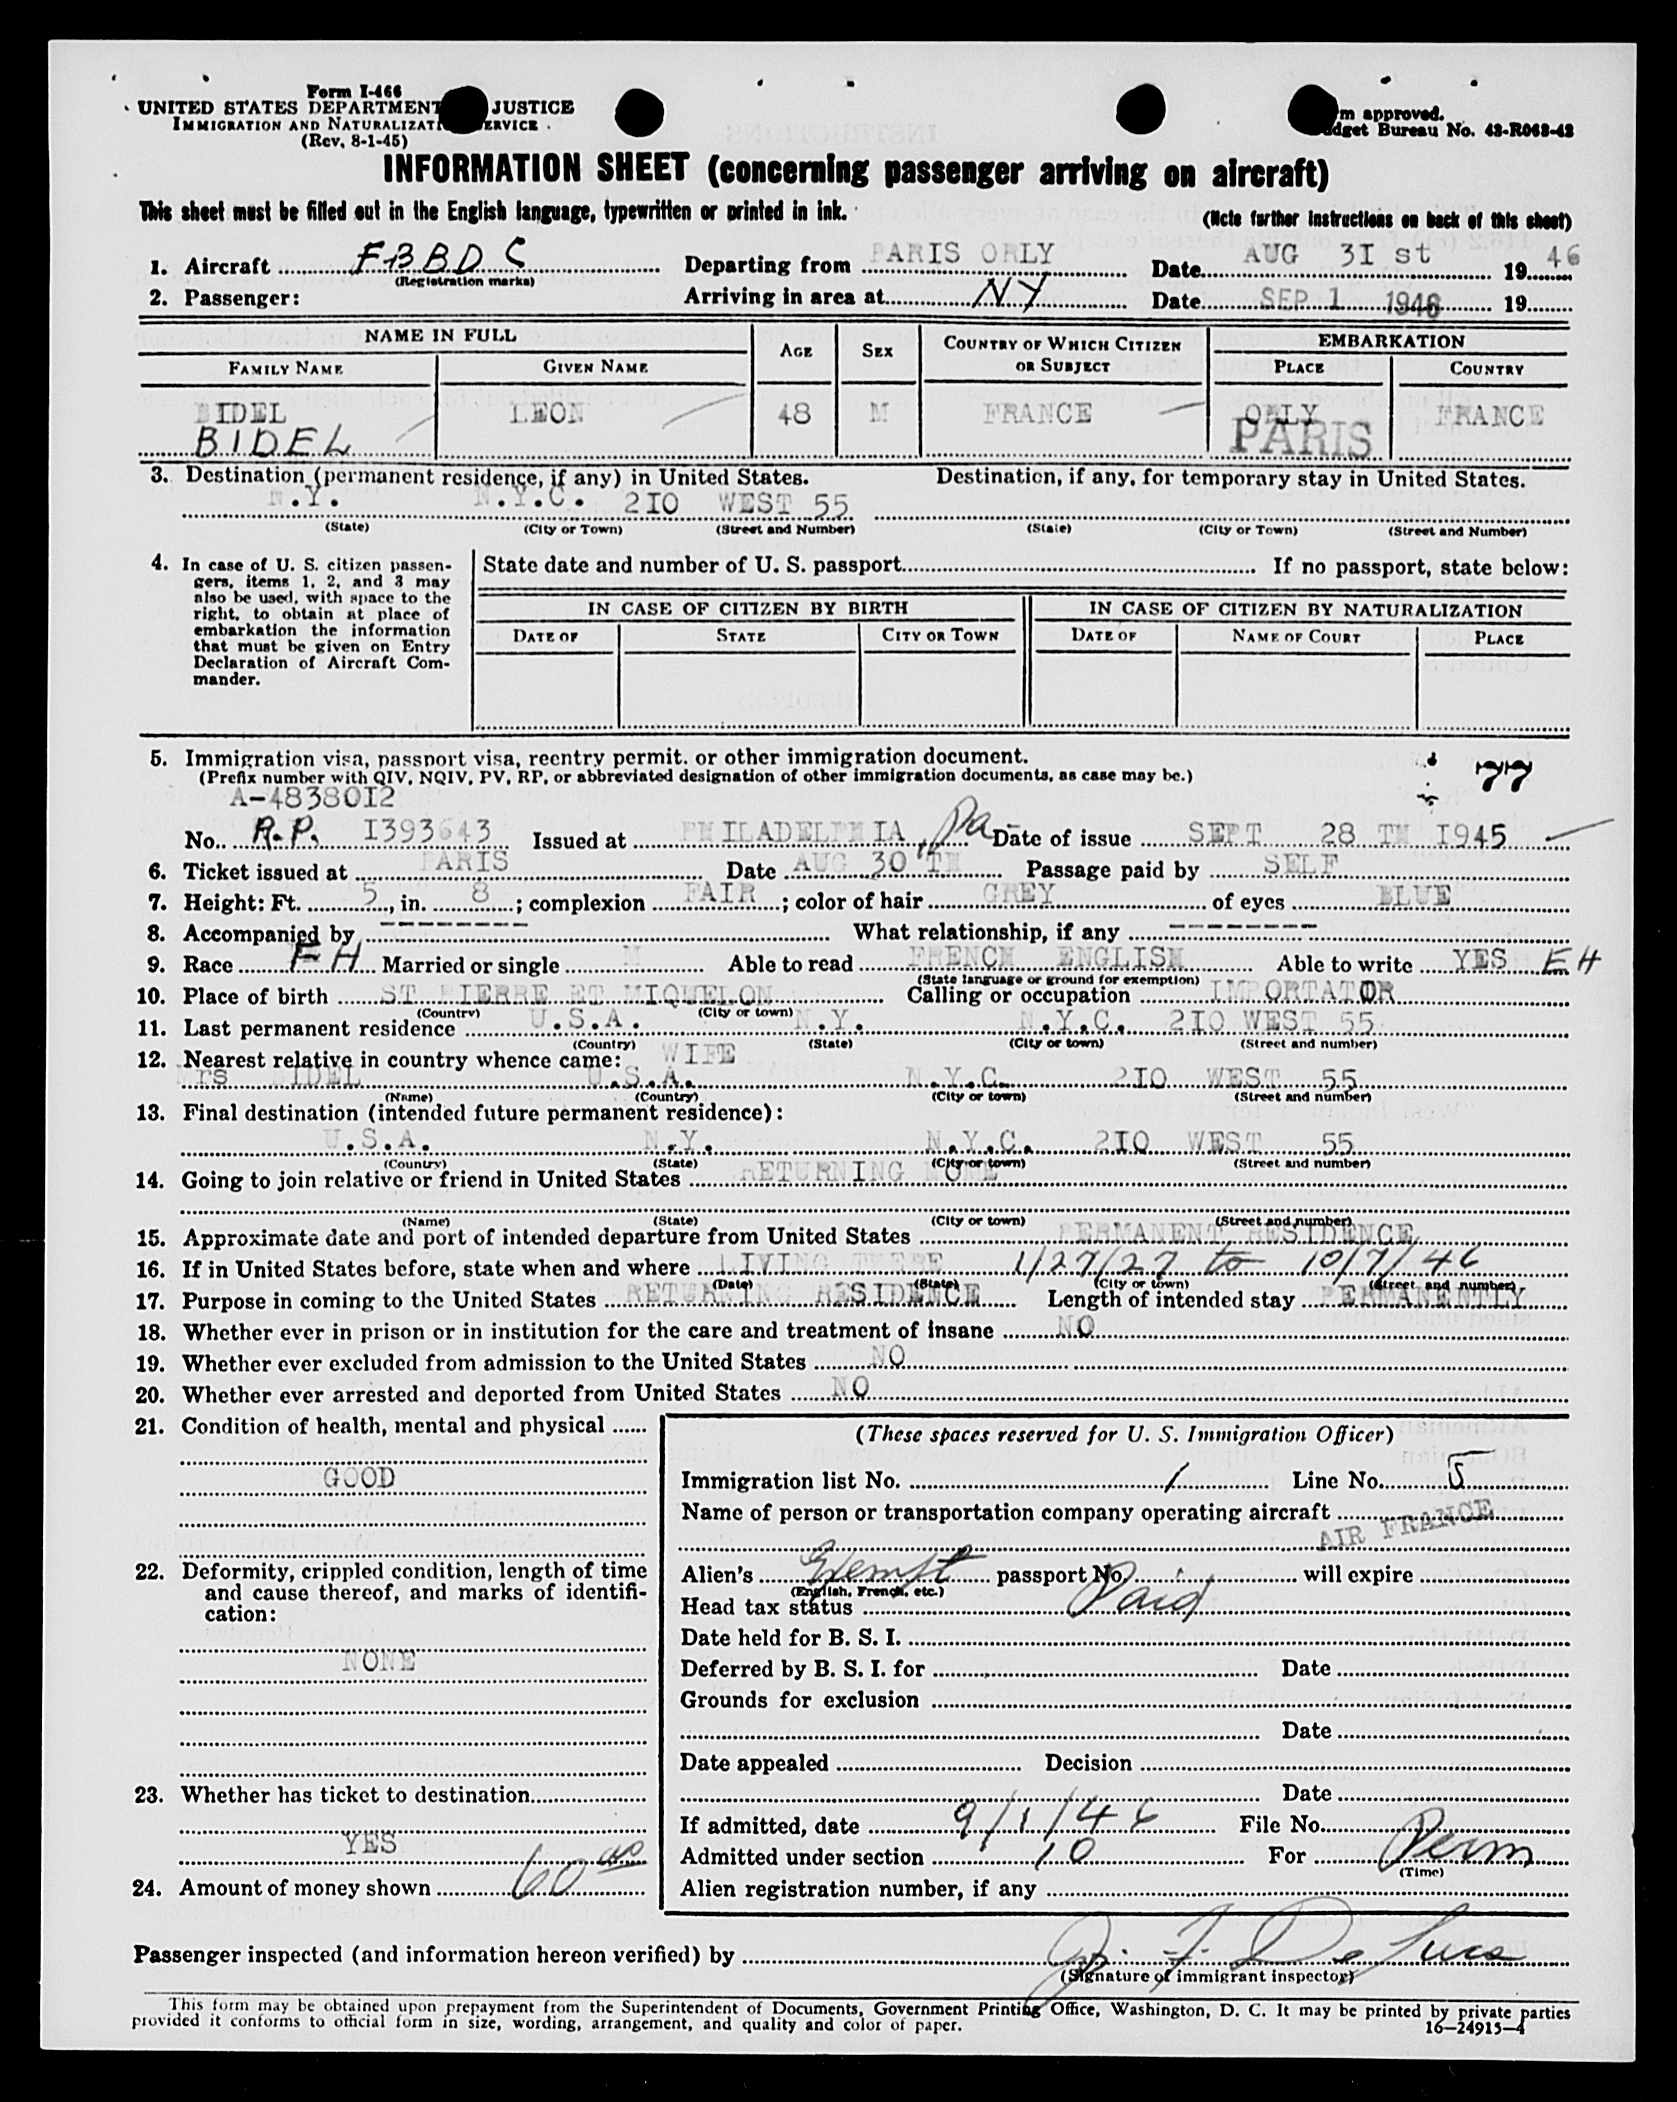 Form I-466
UNITED STATES DEPARTMENT JUSTICE
IMMIGRATION AND NATURALIZATI ERVICE
(Rev. 8-1-45)
m approved.
dget Bureau No. 43-R063-42
INFORMATION SHEET (concerning passenger arriving on aircraft)
This sheet must be filled out in the English language, typewritten or printed in ink.
(Note further instructions on back of this sheet)
1. Aircraft F-BBDC Departing from PARIS ORLY Date AUG 3I st 1946
(Registration marks)
2. Passenger: Arriving in area at NY Date SEP 1 1946 19
NAME IN FULL AGE SEX COUNTRY OF WHICH CITIZEN OR SUBJECT EMBARKATION
FAMILY NAME GIVEN NAME PLACE COUNTRY
BIDEL LEON 48 M FRANCE ORLY FRANCE
BIDEL PARIS
3. Destination (permanent residence, if any) in United States. Destination, if any, for temporary stay in United States.
N.Y. N.Y.C. 2I0 WEST 55
(State) (City or Town) (Street and Number) (State) (City or Town) (Street and Number)
4. In case of U. S. citizen passen-
gers, items 1, 2, and 3 may
also be used, with space to the
right, to obtain at place of
embarkation the information
that must be given on Entry
Declaration of Aircraft Com-
mander.
State date and number of U. S. passport If no passport, state below:
IN CASE OF CITIZEN BY BIRTH IN CASE OF CITIZEN BY NATURALIZATION
DATE OF STATE CITY OR TOWN DATE OF NAME OF COURT PLACE
5. Immigration visa, passport visa, reentry permit, or other immigration document.
(Prefix number with QIV, NQIV, PV, RP, or abbreviated designation of other immigration documents, as case may be.)
77
A-48380I2
No. R.P. I393643 Issued at PHILADELPHIA, Pa Date of issue SEPT 28 TH I945
6. Ticket issued at PARIS Date AUG 30 TH Passage paid by SELF
7. Height: Ft. 5, in. 8; complexion FAIR; color of hair GREY of eyes BLUE
8. Accompanied by -------- What relationship, if any --------
9. Race FH Married or single M Able to read FRENCH ENGLISH Able to write YES EH
(State language or ground for exemption)
10. Place of birth ST PIERRE ET MIQUELON Calling or occupation IMPORTATOR
(Country) (City or town)
11. Last permanent residence U.S.A. N.Y. N.Y.C. 2I0 WEST 55
(Country) (State) (City or town) (Street and number)
12. Nearest relative in country whence came: WIFE
Mrs BIDEL U.S.A. N.Y.C. 2I0 WEST 55
(Name) (Country) (City or town) (Street and number)
13. Final destination (intended future permanent residence):
U.S.A. N.Y. N.Y.C. 2I0 WEST 55
(Country) (State) (City or town) (Street and number)
14. Going to join relative or friend in United States RETURNING HOME
(Name) (State) (City or town) (Street and number)
15. Approximate date and port of intended departure from United States PERMANENT RESIDENCE
16. If in United States before, state when and where LIVING THERE 1/27/27 to 10/7/46
(Date) (State) (City or town) (Street and number)
17. Purpose in coming to the United States RETURNING RESIDENCE Length of intended stay PERMANENTLY
18. Whether ever in prison or in institution for the care and treatment of insane NO
19. Whether ever excluded from admission to the United States NO
20. Whether ever arrested and deported from United States NO
21. Condition of health, mental and physical
GOOD
22. Deformity, crippled condition, length of time
and cause thereof, and marks of identifi-
cation:
NONE
23. Whether has ticket to destination
YES
24. Amount of money shown 60 00
(These spaces reserved for U. S. Immigration Officer)
Immigration list No. 1 Line No. 5
Name of person or transportation company operating aircraft
AIR FRANCE
Alien's Exempt passport No. will expire
(English, French, etc.)
Head tax status Paid
Date held for B. S. I.
Deferred by B. S. I. for Date
Grounds for exclusion
Date
Date appealed Decision
Date
If admitted, date 9/1/46 File No.
Admitted under section 10 For Perm
(Time)
Alien registration number, if any
Passenger inspected (and information hereon verified) by J. F. De Luca
(Signature of immigrant inspector)
This form may be obtained upon prepayment from the Superintendent of Documents, Government Printing Office, Washington, D. C. It may be printed by private parties
provided it conforms to official form in size, wording, arrangement, and quality and color of paper.
16—24915-4